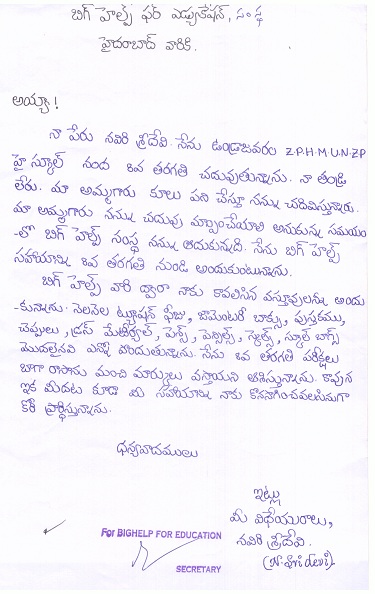 బిగ్ హెల్ప్ ఫర్ ఎడ్యుకేషన్, సంస్థ
హైదరాబాద్ వారికి.
అయ్యా!
నా పేరు నవిరి శ్రీదేవి. నేను ఉండ్రాజవరం Z.P.H.M.U.N.ZP
హైస్కూల్ నంద 8వ తరగతి చదువుతున్నాను. నా తండ్రి
లేరు. మా అమ్మగారు కూలు పని చేస్తూ నన్ను చదివిస్తున్నారు.
మా అమ్మగారు నన్ను చదువు మాన్పించేయాలి అనుకున్న సమయం
-లో బిగ్ హెల్ప్ సంస్థ నన్ను ఆదుకున్నది. నేను బిగ్ హెల్ప్
సహాయాన్ని 8వ తరగతి నుండి అందుకుంటున్నాను.
బిగ్ హెల్ప్ వారి ద్వారా నాకు కావలిసిన వస్తువులను అందు
-కున్నాను. నెలనెల ట్యూషన్ ఫీజు, జామెంటరీ బాక్సు, పుస్తకము,
చెప్పులు, డ్రస్ మేటీర్యల్, పెన్స్, పెన్సిల్స్, స్కేల్స్, స్కూల్ బాగ్స్
మొదలైనవి ఎన్నో పొందుతున్నాను. నేను 8వ తరగతి పరీక్షలు
బాగా రాసాను మంచి మార్కులు వస్తాయని ఆశిస్తున్నాను. కావున
ఇక మీదట కూడా మీ సహాయాన్ని నాకు కొనసాగించవలసినదిగా
కోరి ప్రార్థిస్తున్నాను.
ధన్యవాదములు
ఇట్లు
మీ విధేయురాలు,
నవిరి శ్రీదేవి.
(N. Sri devi).
For BIGHELP FOR EDUCATION
SECRETARY